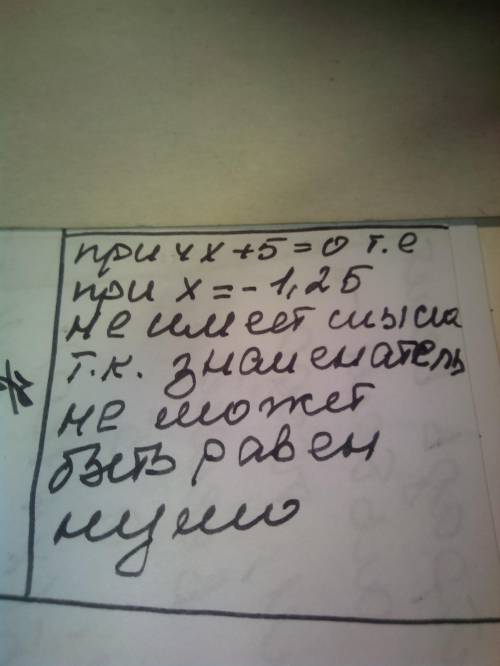 при 4x+5=0 т.е
при x=-1,25
не имеет смысла
т.к. знаменатель
не может
быть равен
нулю